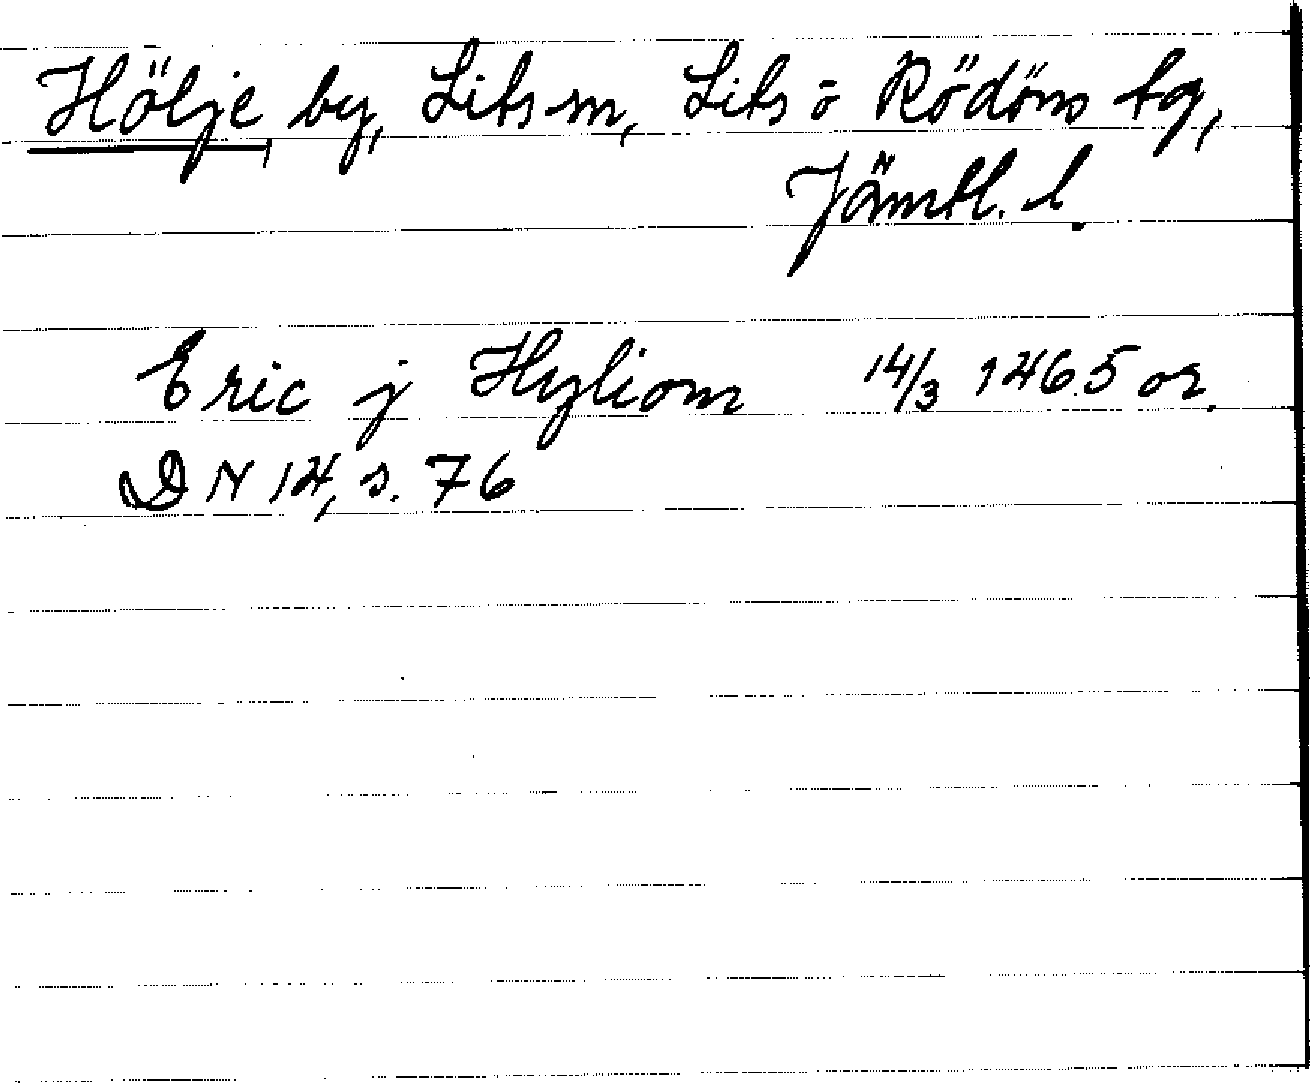 Hölje by, Lits sn, Lits o Rödöns tg,
Jämtl. l.
Eric j Hyliom 14/3 1465 or.
DN 14, s. 76